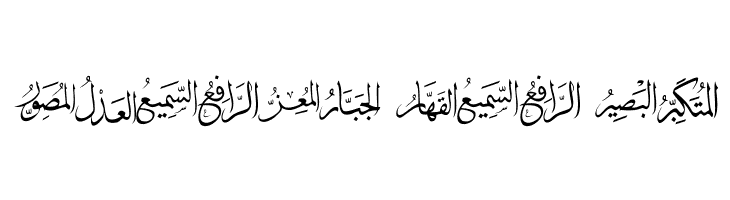 المُتَكَبِّرُ البَصِيرُ الرَّافِعُ السَّمِيعُ القَهَّارُ الجَبَّارُ المُعِزُّ الرَّافِعُ السَّمِيعُ العَدْلُ المُصَوِّرُ